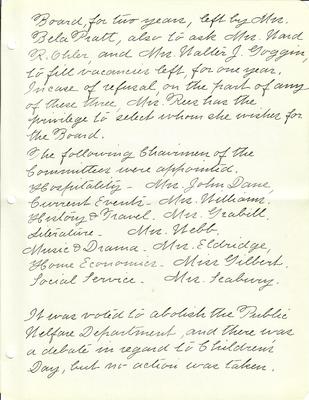 Board, for two years, left by Mrs.
Bela Pratt, also to ask Mrs. Ward
R. Ohler, and Mrs. Walter J. Goggin,
to fill vacancies left, for one year.
In case of refusal, on the part of any
of these three, Mrs. Rees has the
privilege to select whom she wishes for
the Board.
The following Chairmen of the
Committees were appointed.
Hospitality - Mrs. John Dane,
Current Events - Mrs. Williams.
History & Travel. Mrs. Yeabell.
Literature - Mrs. Webb.
Music & Drama - Mrs. Eldridge,
Home Economics - Miss Gilbert.
Social Service - Mrs. Seabury.
It was voted to abolish the Public
Welfare Department, and there was
a debate in regard to Children's
Day, but no action was taken.